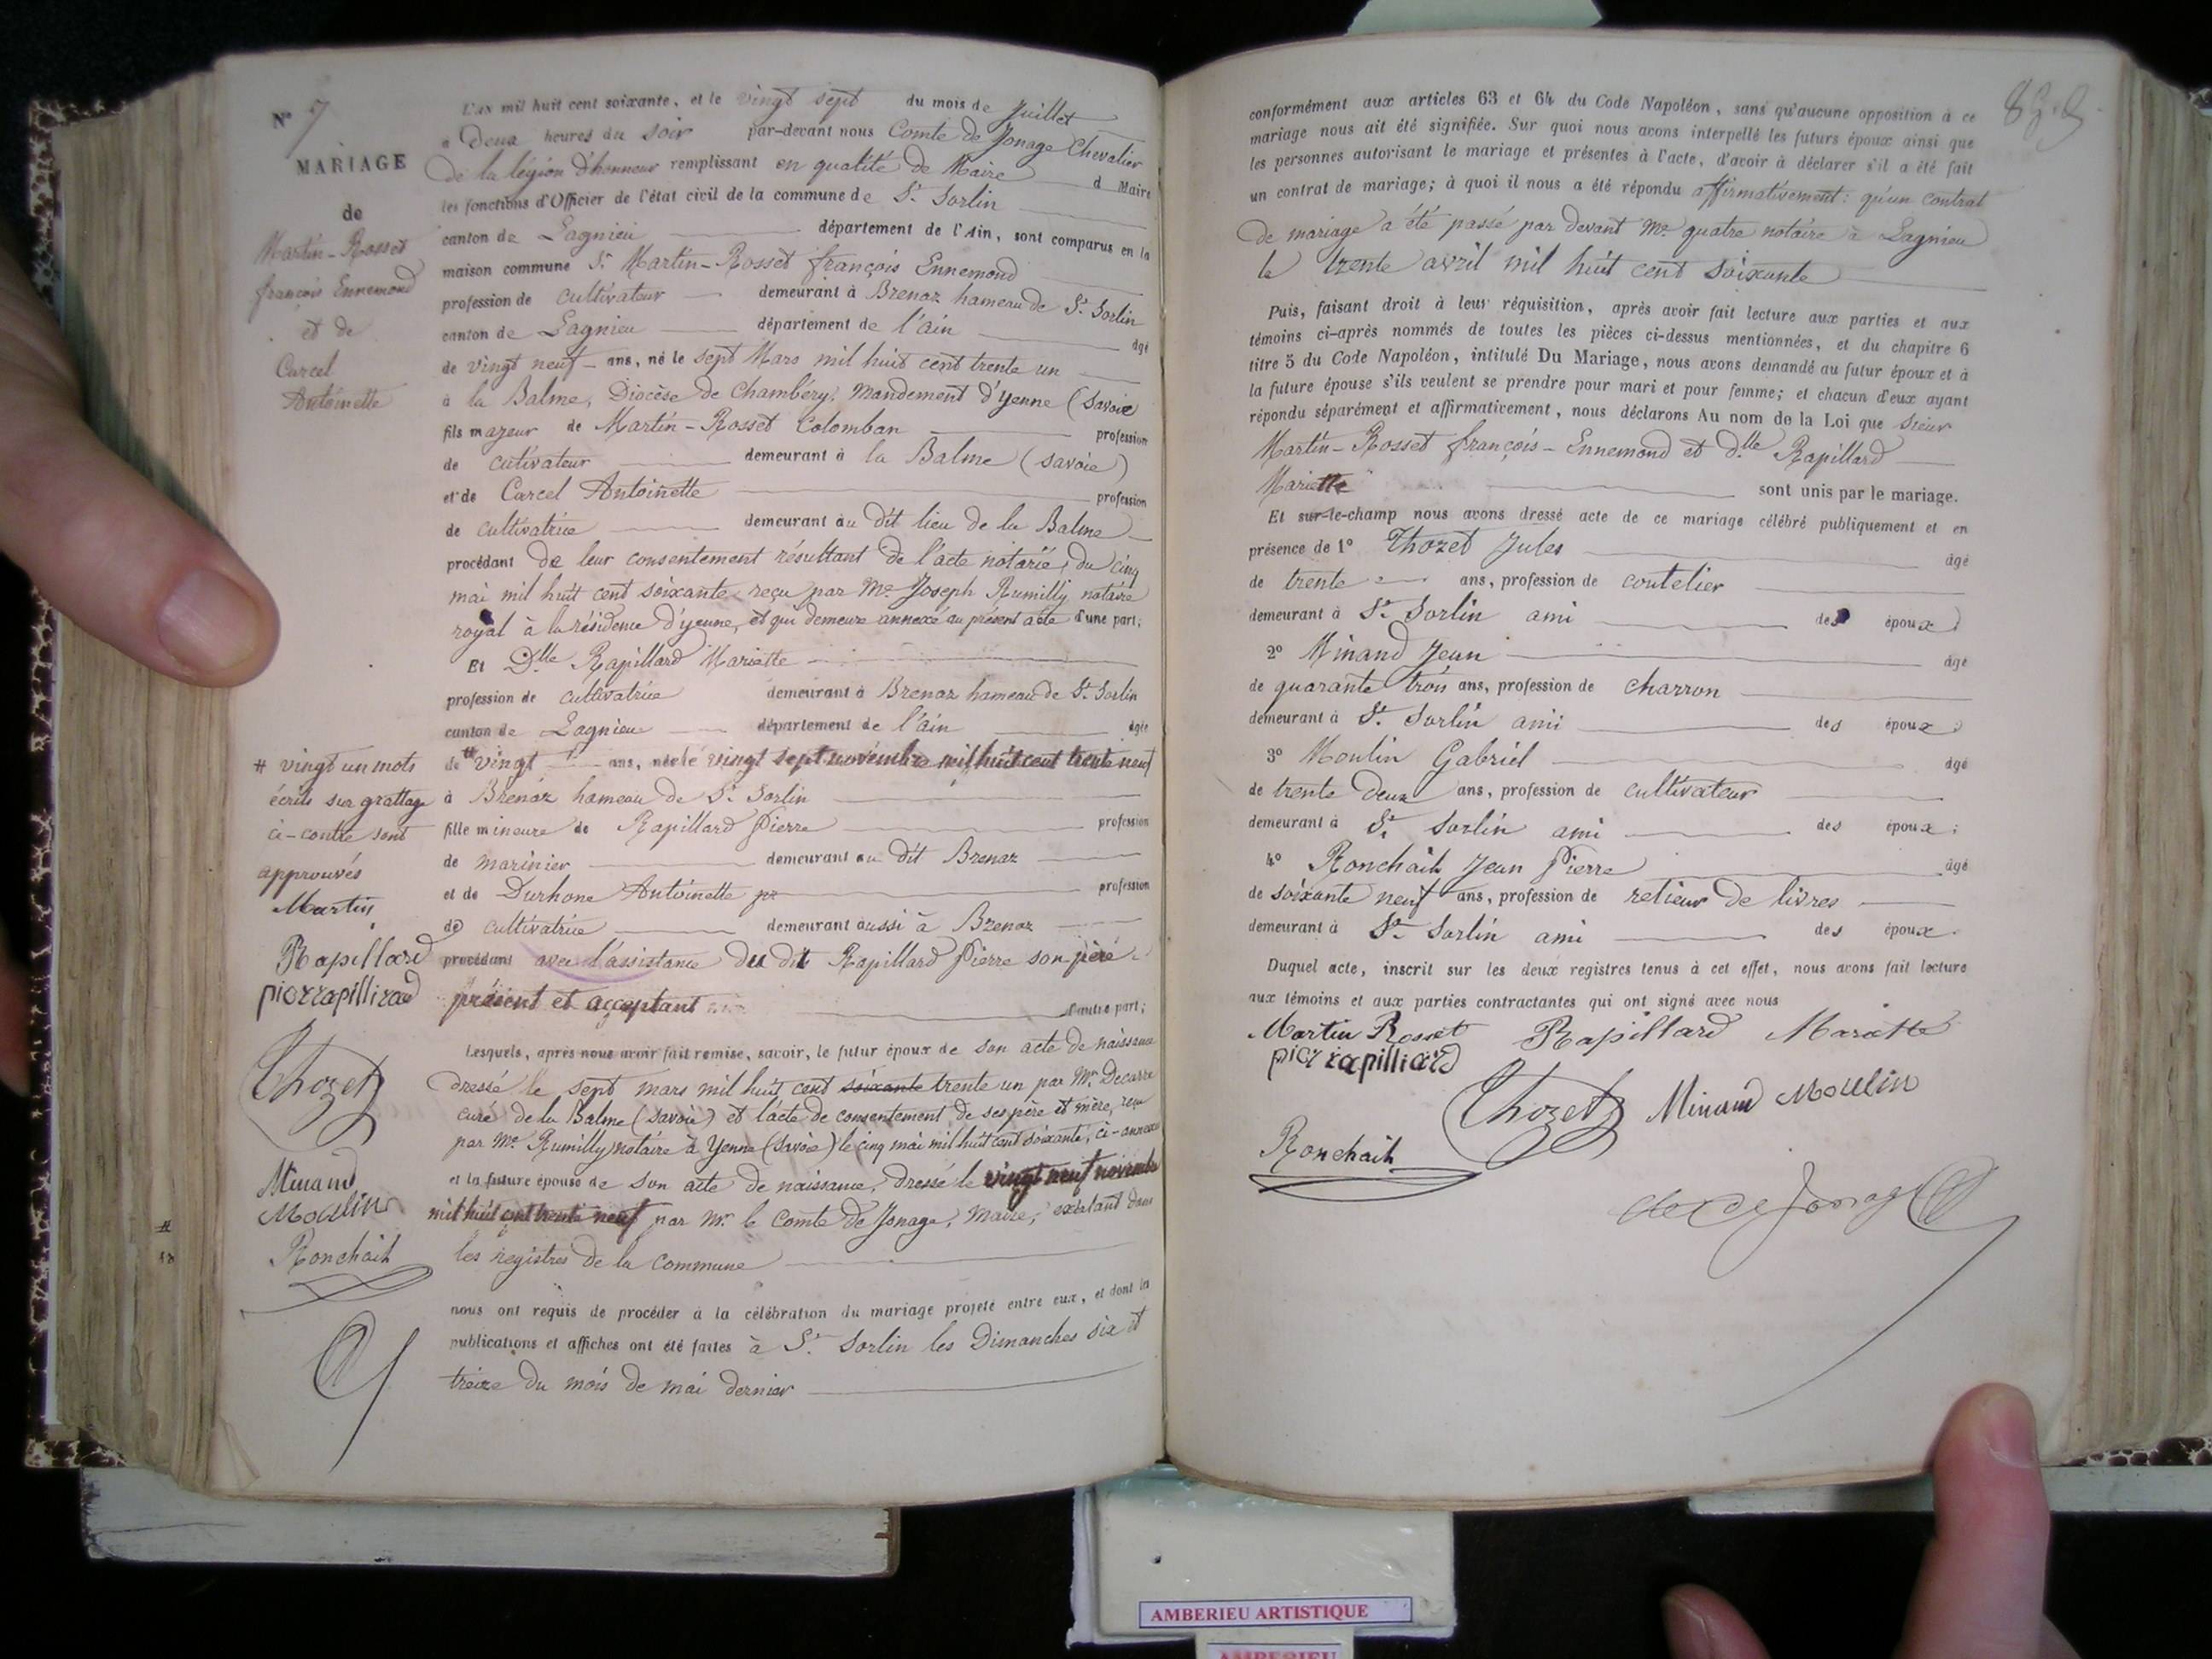 N° 7
MARIAGE
de
Martin-Rosset
françois Ennemond
et de
Carcel
Antoinette
L'AN mil huit cent soixante, et le vingt sept du mois de Juillet
a Deux heures du soir par-devant nous Comte de Jonage Chevalier
De la légion d'honneur remplissant en qualité de Maire d Maire
les fonctions d'Officier de l'état civil de la commune de St Sorlin
canton de Lagnieu département de l'Ain, sont comparus en la
maison commune Sr Martin-Rosset françois Ennemond
profession de cultivateur demeurant à Brenaz hameau de St Sorlin
canton de Lagnieu département de l'ain âgé
de vingt neuf ans, né le sept Mars mil huit cent trente un
à la Balme, Diocèse de Chambéry, Mandement d'yenne (Savoie
fils majeur de Martin-Rosset Colomban profession
de cultivateur demeurant à la Balme (savoie)
et de Carcel Antoinette profession
de cultivatrice demeurant au dit lieu de la Balme
procédant de leur consentement résultant de l'acte notarié, du cinq
mai mil huit cent soixante reçu par Me Joseph Rumilly notaire
royal à la résidence d'yenne, et qui demeure annexé au présent acte d'une part;
Et Dlle Rapillard Mariette
profession de cultivatrice demeurant à Brenaz hameau de St Sorlin
canton de Lagnieu département de l'ain âgée
de # vingt ans, née le vingt sept novembre mil huit cent trente neuf
à Brenaz hameau de St Sorlin
fille mineure de Rapillard Pierre profession
de marinier demeurant au dit Brenaz
et de Durhone Antoinette pr profession
de cultivatrice demeurant aussi à Brenaz
procédant avec l'assistance du dit Rapillard Pierre son père
présent et acceptant d'autre part;
# vingt un mots
écrits sur grattage
ci-contre sont
approuvés
Martin
Rapillard
pierrapillirad
Thozet
Minand
Moulin
Ronchait
Lesquels, après nous avoir fait remise, savoir, le futur époux de son acte de naissance
dressé le sept mars mil huit cent soixante trente un par Mr Decarre
curé de la Balme (savoie) et l'acte de consentement de ses père et mère, reçu
par Me Rumilly notaire à Yenne (Savoie) le cinq mai mil huit cent soixante, ci-annexé
et la future épouse de son acte de naissance, dressé le vingt neuf novembre
mil huit cent trente neuf par Mr le Comte de Jonage, Maire, existant dans
les registres de la commune
nous ont requis de procéder à la célébration du mariage projeté entre eux, et dont les
publications et affiches ont été faites à St Sorlin les Dimanches six et
treize du mois de mai dernier
conformément aux articles 63 et 64 du Code Napoléon, sans qu'aucune opposition à ce
mariage nous ait été signifiée. Sur quoi nous avons interpellé les futurs époux ainsi que
les personnes autorisant le mariage et présentes à l'acte, d'avoir à déclarer s'il a été fait
un contrat de mariage; à quoi il nous a été répondu affirmativement: qu'un contrat
de mariage a été passé par devant Me quatre notaire à Lagnieu
le trente avril mil huit cent soixante
Puis, faisant droit à leur réquisition, après avoir fait lecture aux parties et aux
témoins ci-après nommés de toutes les pièces ci-dessus mentionnées, et du chapitre 6
titre 5 du Code Napoléon, intitulé Du Mariage, nous avons demandé au futur époux et à
la future épouse s'ils veulent se prendre pour mari et pour femme; et chacun d'eux ayant
répondu séparément et affirmativement, nous déclarons Au nom de la Loi que Sieur
Martin-Rosset françois-Ennemond et Dlle Rapillard
Mariette sont unis par le mariage.
Et sur-le-champ nous avons dressé acte de ce mariage célébré publiquement et en
présence de 1° Thozet Jules âgé
de trente ans, profession de coutelier
demeurant à St Sorlin ami des époux
2° Minand Jean âgé
de quarante trois ans, profession de charron
demeurant à St Sorlin ami des époux
3° Moulin Gabriel âgé
de trente deux ans, profession de cultivateur
demeurant à St Sorlin ami des époux;
4° Ronchait Jean Pierre âgé
de soixante neuf ans, profession de relieur de livres
demeurant à St Sorlin ami des époux.
Duquel acte, inscrit sur les deux registres tenus à cet effet, nous avons fait lecture
aux témoins et aux parties contractantes qui ont signé avec nous
Martin Rosset Rapillard Mariette
pierrapilliard
Thozet Minand Moulin
Ronchait
de Jonage
AMBERIEU ARTISTIQUE
AMBERIEU